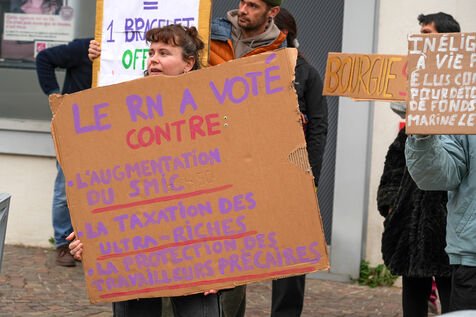 =
1 BRACELET
OFF
LE RN A VOTÉ
CONTRE
• L'AUGMENTATION
DU SMIC
• LA TAXATION DES
ULTRA-RICHES
• LA PROTECTION DES
TRAVAILLEURS PRÉCAIRES
BOURGIE
INÉLIG
A VIE P
ÉLUS CO
POUR DÉTO
DE FONDS
MARINE LE